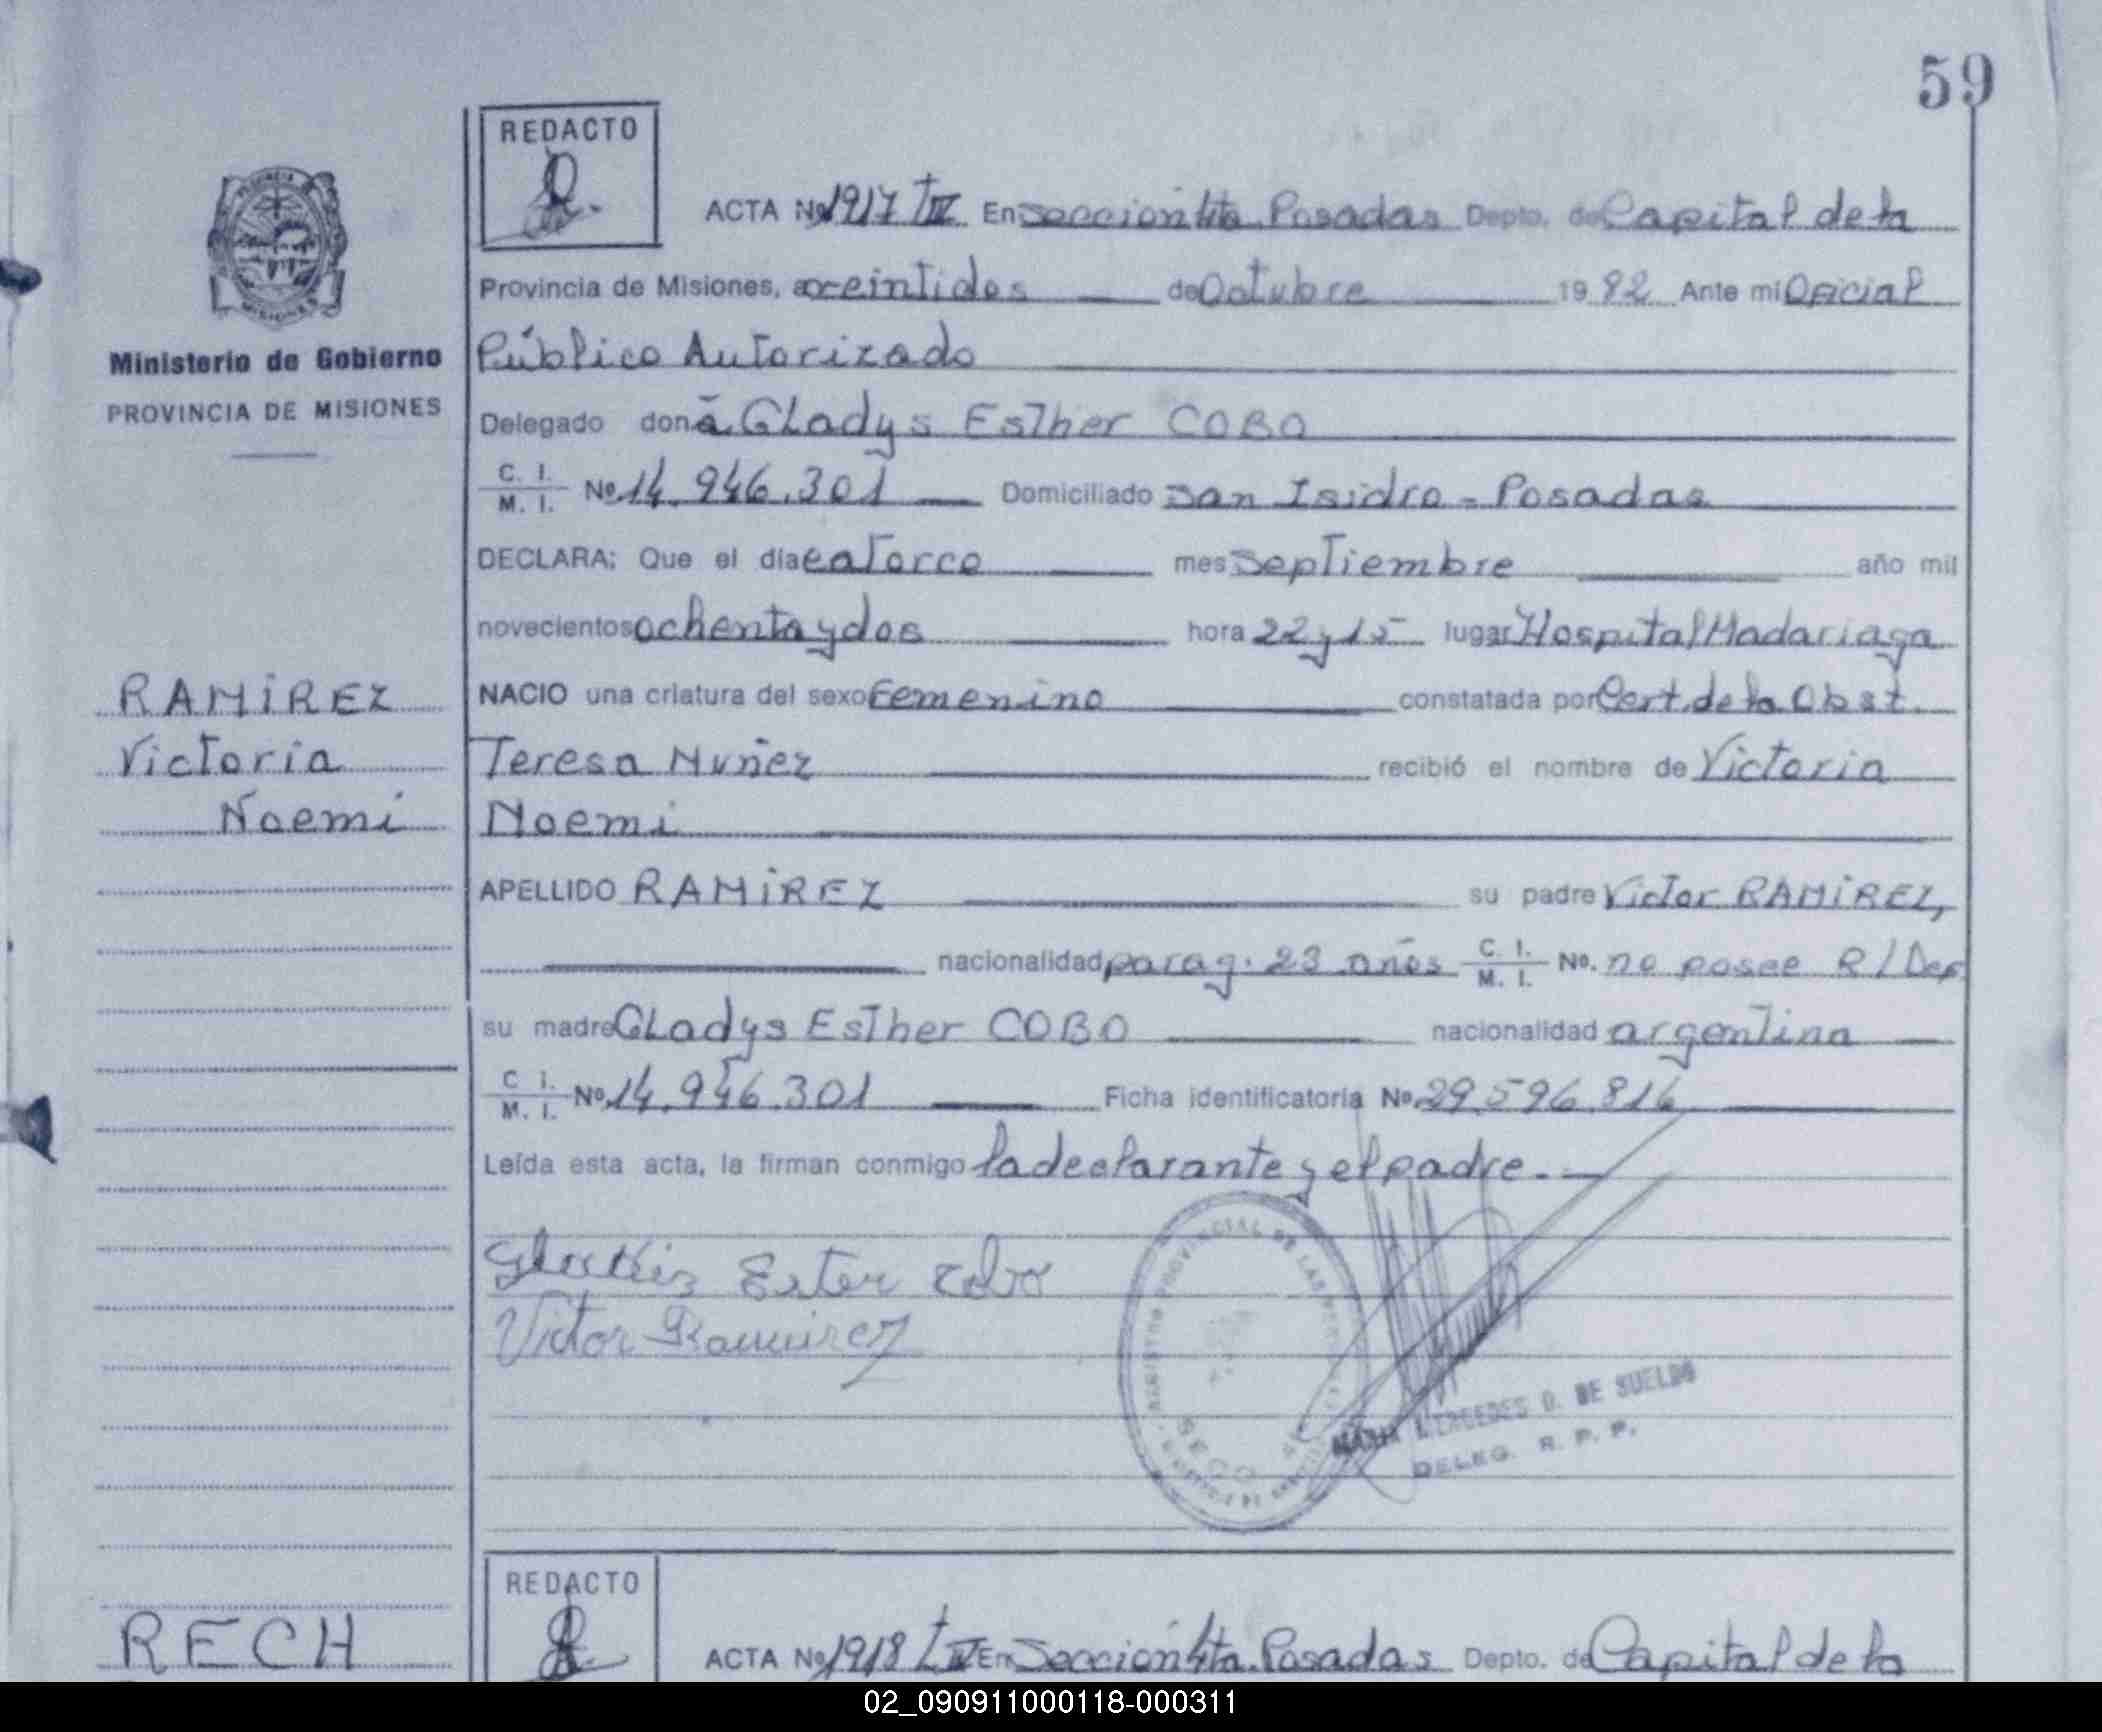 59
REDACTO
ACTA Nº 1917 TIV En Seccion 4ta. Posadas Depto. de Capital de la
Provincia de Misiones, a veintidos de Octubre 1982 Ante mi Oficial
Público Autorizado
Ministerio de Gobierno
PROVINCIA DE MISIONES
Delegado doña Gladys Esther COBO
C. I. / M. I. Nº 14.946.301 Domiciliado San Isidro - Posadas
DECLARA: Que el dia catorce mes septiembre año mil
novecientos ochenta y dos hora 22 y 15 lugar Hospital Madariaga
RAMIREZ
NACIO una criatura del sexo Femenino constatada por Cert. de la Obst.
Victoria
Teresa Nuñez recibió el nombre de Victoria
Noemi
Noemi
APELLIDO RAMIREZ su padre Victor RAMIREZ,
nacionalidad parag. 23 años C. I. / M. I. Nº. no posee R/Dep
su madre Gladys Esther COBO nacionalidad argentina
C I. / M. I. Nº 14.946.301 Ficha identificatoria Nº 29.596.816
Leída esta acta, la firman conmigo la declarante y el padre.-
Ester Cobo
Victor Ramirez
MARIA MERCEDES D. DE SUELDO
DELEG. R. P. P.
REDACTO
RECH
ACTA Nº 1918 TIV En Seccion 4ta. Posadas Depto. de Capital de la
02_090911000118-000311